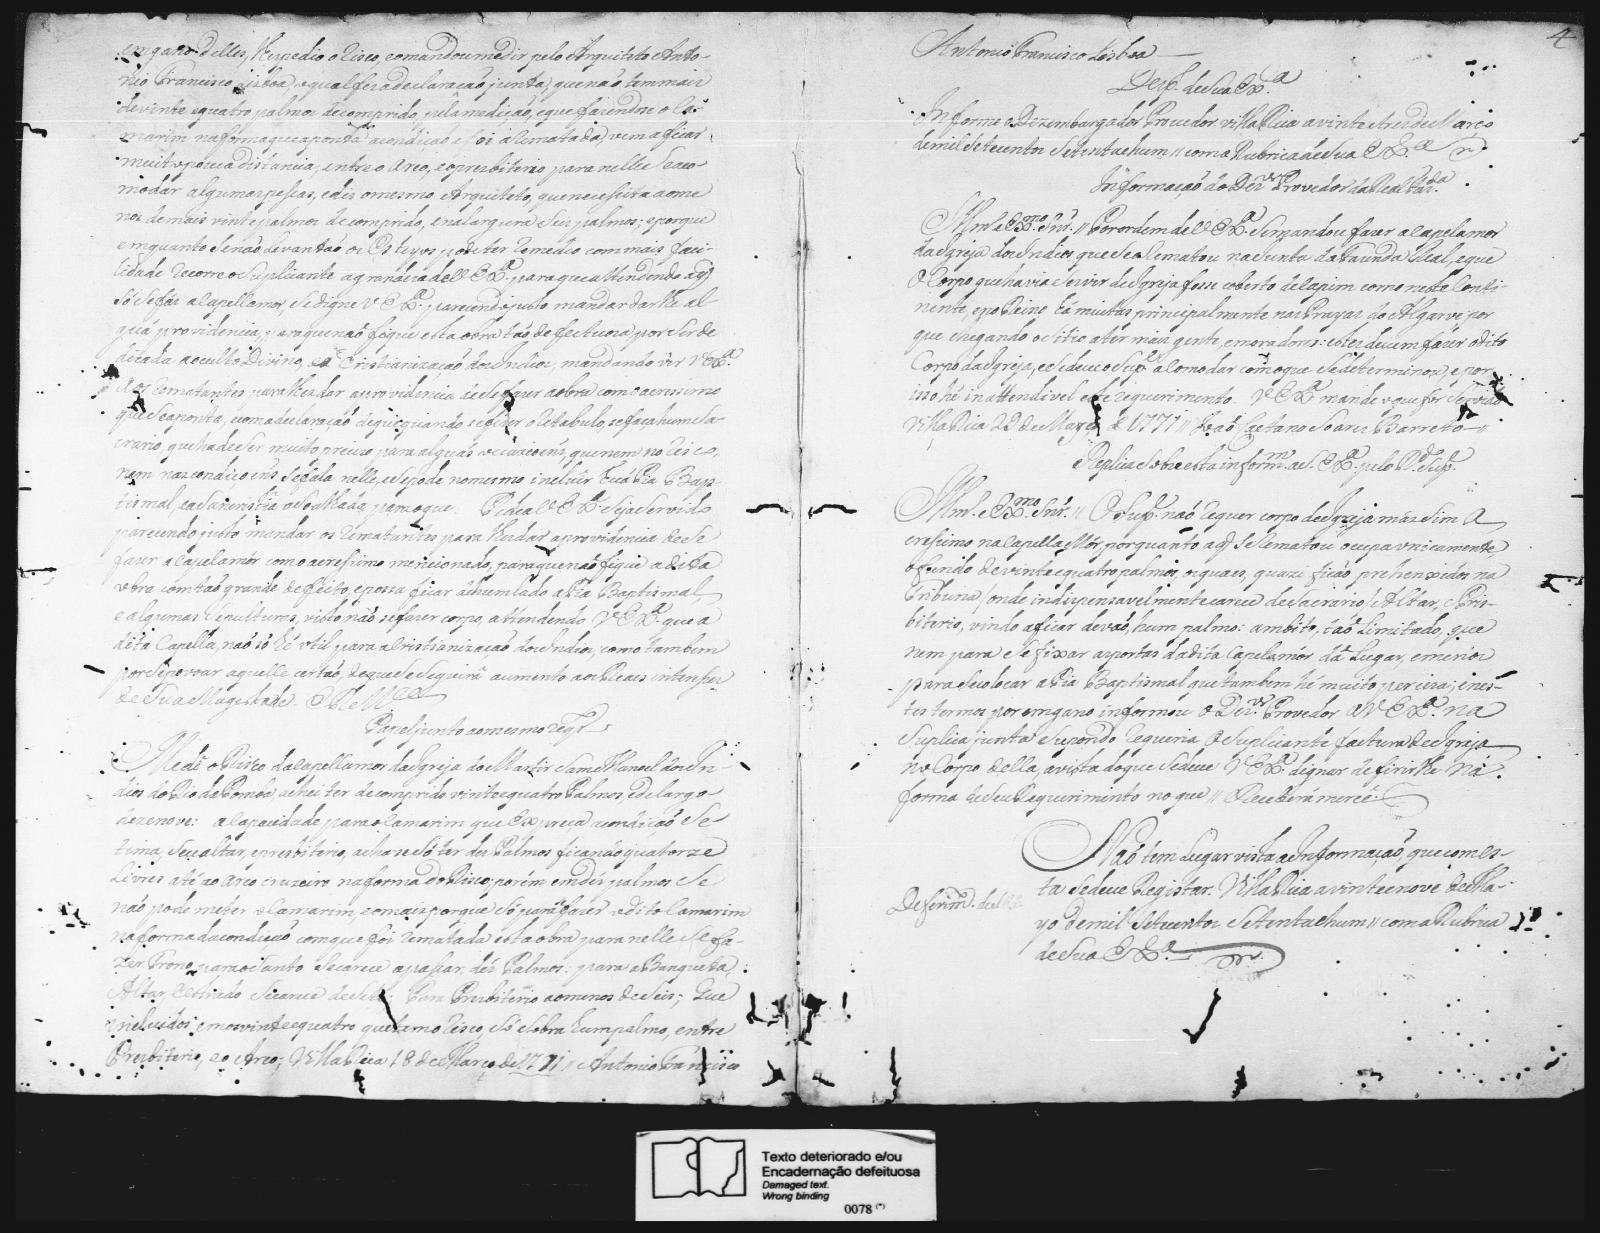 engano delles, lhe pedio o Risco, e o mandou medir pelo Arquiteto Anto-
nio Francisco Lisboa, o qual fez a declaração junta, que não tem mais
de vinte e quatro palmos de comprido, pela medição, e que fazendo se o Ca-
marim na forma que aponta a condição e foi a Rematada, vem a ficar
muito pouca distancia, entre o Arco, e o presbiterio para nelle se aco-
modar algumas pessas, e diz o mesmo Arquiteto, que necessita ao me-
nos de mais vinte palmos de comprido, e na largura seis palmos; e porque
emquanto se não levantão os Esteyos pode ter remedio com mais faci-
lidade recorre o Suplicante a grandeza de V. Exª. para que attendendo a q
só se fas a Capella mor, se digne V. Exª. parecendo justo mandar dar lhe al-
guã providencia, para que não fique esta obra tão defectuosa, por ser de-
dicada ao culto Divino, e a Cristianização dos Indios, mandando vir V. Exª.
aos Rematantes, para lhe dar a providencia de se fazer a obra com o acrescimo
que se aponta, com a declaração de que quando se fizer o Retabulo, se faça hum Sa-
crario, que ha de ser muito precizo para alguãs occazioens, que nem no Risco,
nem nas condiçoens se fala nelle, e se pode no mesmo incluir huã Pia Bap-
tismal, e a Sancristia o Soalhada, para o que. Pede a V. Exª. Seja Servido
parecendo justo mandar os Rematantes para lhe dar a providencia de se
fazer a Capela mór com o acressimo mencionado, para que não fique a dita
obra com tão grande defeito, e possa ficar a hum lado a Pia Baptismal,
e algumas Sepulturas, visto não se fazer corpo, attendendo V. Exª. que a
dita Capella, não só hé util para a Cristianização dos Indios, como tambem
por se povoar aquelle certão, de que se seguirá aumento aos Reaes intereses
de Sua Magestade. E R Mce
Papel junto ao mesmo reqt.
Medi o Risco da Capella mor da Igreja do Martir Sam Manoel dos In-
dios do Rio da Pomba achei ter de comprido vinte e quatro Palmos, e de largo
dezenove: a Capacidade para o Camarim que expreça a condição Se-
tima, seu altar, e presbiterio, acha se só ter des Palmos ficando quatorze
Livres até ao Arco cruzeiro na forma do Risco; porém em dés palmos se
não pode meter o Camarim, e o mais, porque só para se fazer o dito Camarim
na forma da condição com que foi rematada esta obra para nelle se fa-
zer Trono, para o Santo se carece a passar, dés Palmos: para a Banqueta,
Altar, e Estrado se carece de Sete: Para Presbiterio ao menos de Seis; Que
incluidos, em os vinte e quatro que tem o risco, só sobra hum palmo, entre
Presbiterio, e o Arco; Villa Rica 18 de Março de 1771 // Antonio Francisco
4
Antonio Francisco Lisboa
Desp. de Sua Exª.
Informe o Dezembargador Provedor. Villa Rica a vinte e tres de Março
de mil Setecentos Setenta e hum // com a Rubrica de Sua Exª.
Informação do Dezor. Provedor da Real Fazda.
Illmo. e Exmo. Snr. // Por ordem de V. Exª. Se mandou fazer a Capela mor
da Igreja dos Indios que se a Rematou na Junta da Fazenda Real, e que
o Corpo que havia Servir de Igreja fosse coberto de Capim como neste Conti-
nente, e no Reino há muitas principalmente nas Prayas do Algarve; por
que chegando o Sitio a ter mais gente, e moradores: estes devem fazer o dito
Corpo da Igreja, e se deve o Supe. acomodar com o que se determinou, e por
isso hé inattendivel este requerimento. V. Exª. mande o que for Servido
Villa Rica 22 de Mayo de 1771 // João Caetano Soares Barreto //
Replica sobre esta inform. a S. Exª. pelo Do. Supe.
Illmo. e Exmo. Snr. // O Supe. não requer corpo de Igreja mas sim a-
cressimo na Capella Mór, porquanto a q. se Rematou occupa unicamente
o fundo de vinte e quatro palmos, os quaes, quazi ficão prehenxidos, na
Tribuna (onde indispensavelmente carece de Sacrario) Altar, e Pres-
biterio, vindo a ficar de vão, hum palmo: ambito, tão Limitado, que
nem para se fixar as portas da dita Capela mór dá Lugar, e menos
para se colocar a Pia Baptismal que tambem hé muito percisa; e nes-
tes termos por emgano informou o Dezor. Provedor a V. Exª. na
Suplica junta Supondo requeria o Suplicante factura de Igreja
no Corpo della, a vista do que se deve V. Exª. dignar deferir lhe na
forma de seu Requerimento no que // Receberá mercê
Não tem Lugar vista a Informação, que com es-
ta se deve Registar. Villa Rica a vinte e nove de Ma-
yo de mil Setecentos Setenta e hum // com a Rubrica
de Sua Exª.
Deferim. de S. Exª.
Texto deteriorado e/ou
Encadernação defeituosa
Damaged text.
Wrong binding
0078 (*)